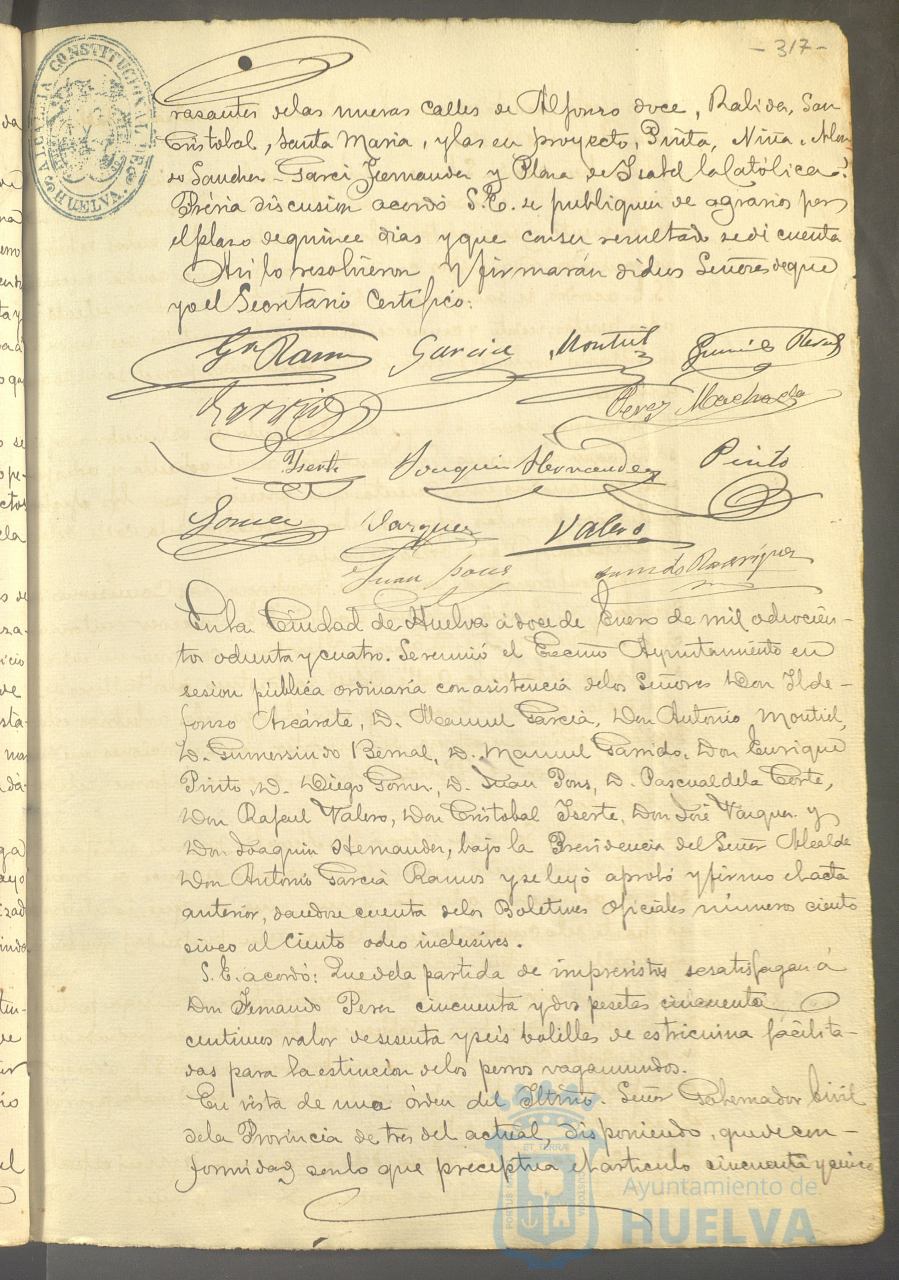 - 317 -
ALCALDIA CONSTITUCIONAL DE HUELVA
rasantes delas nuevas calles de Alfonso doce, Rabida, San
Cristobal, Santa Maria, y las en proyecto, Pinta, Niña, Alon
so Sanchez Garci Fernandez y Plaza de Isabel la Católica.
Prévia discusion acordó S.E. se publiquen de agravios por
el plazo dequince dias y que con su resultado se dé cuenta
Asi lo resolvieron y firmarán dichos Señores deque
yo el Secretario Certifico:
Ga Ramos García Montiel Gumdo Bernal
Garrido Perez Machado
Yserte Joaquin Hernandez Pinto
Gomez Vazquez Valero
Juan Pons Rodríguez
En la Ciudad de Huelva á doce de Enero de mil ochocien-
tos ochenta y cuatro. Se reunió el Excmo Ayuntamiento en
sesion pública ordinaria con asistencia delos Señores Don Ilde-
fonso Azcárate, D. Manuel Garcia, Don Antonio Montiel,
D. Gumersindo Bernal, D. Manuel Garrido, Don Enrique
Pinto, D. Diego Gomez, D. Juan Pons, D. Pascual dela Corte,
Don Rafael Valero, Don Cristobal Yserte, Don José Vazquez y
Don Joaquin Hernandez, bajo la Presidencia del Señor Alcalde
Don Antonio Garcia Ramos y se leyó aprobó y firmó el acta
anterior, dandose cuenta delos Boletines Oficiales números ciento
cinco al ciento ocho inclusives.
S.E. acordó: Que dela partida de imprevistos se satisfagan á
Don Fernando Perez cincuenta y dos pesetas cincuenta
centimos valor de sesenta y seis bolillas de estricnina facilita-
das para la estincion delos perros vagamundos.
En vista de una órden del Iltmo. Señor Gobernador Civil
dela Provincia de tres del actual, disponiendo, que de con-
formidad con lo que preceptua el articulo cincuenta y cinco
Ayuntamiento de
HUELVA